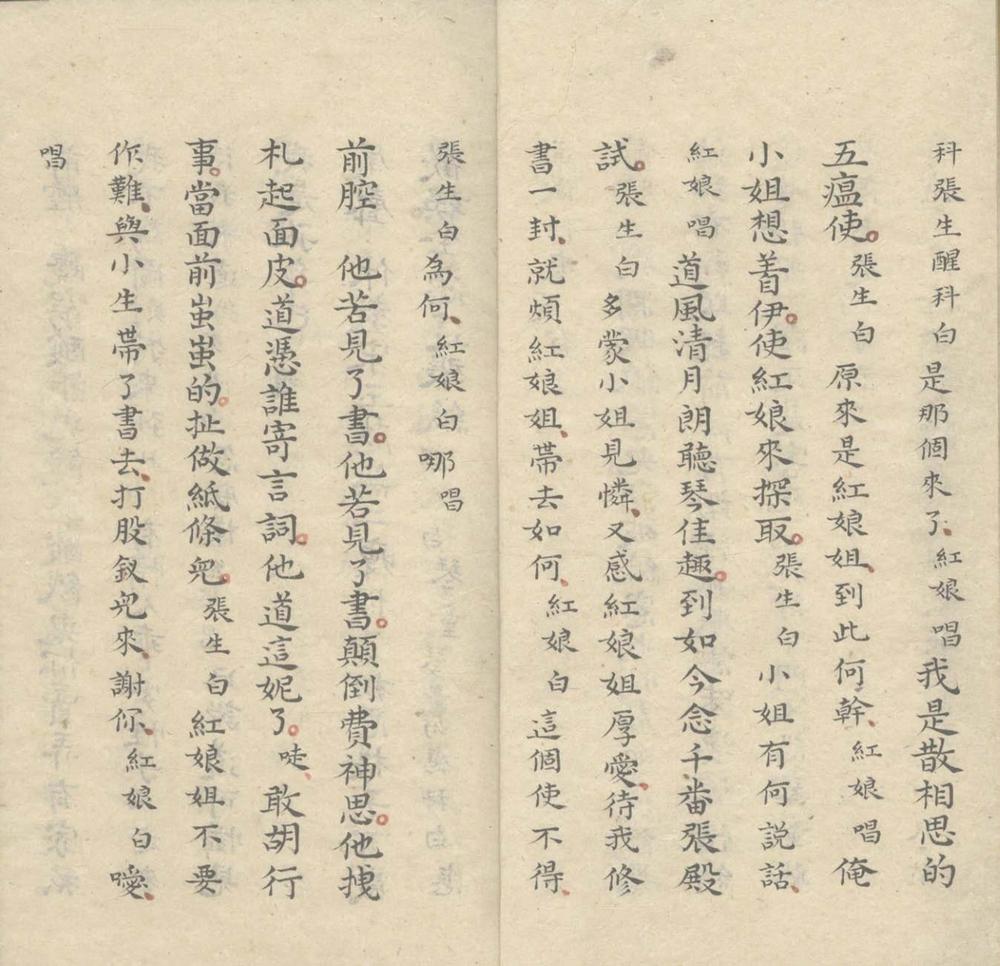 科張生醒科白是那個來了、紅娘唱我是散相思的
五瘟使。張生白原來是紅娘姐、到此何幹、紅娘唱俺
小姐想着伊。使紅娘來探取。張生白小姐有何説話、
紅娘唱道風清月朗聽琴佳趣。到如今念千番張殿
試。張生白多蒙小姐見憐、又感紅娘姐厚愛、待我修
書一封、就煩紅娘姐、帶去如何、紅娘白這個使不得、
張生白為何、紅娘白哪唱
前腔他若見了書。他若見了書。顛倒費神思。他拽
札起面皮。道憑誰寄言詞。他道這妮了。唗、敢胡行
事。當面前蚩蚩的。扯做紙條兒。張生白紅娘姐不要
作難、與小生帶了書去、打股釵兒來、謝你、紅娘白噯、
唱